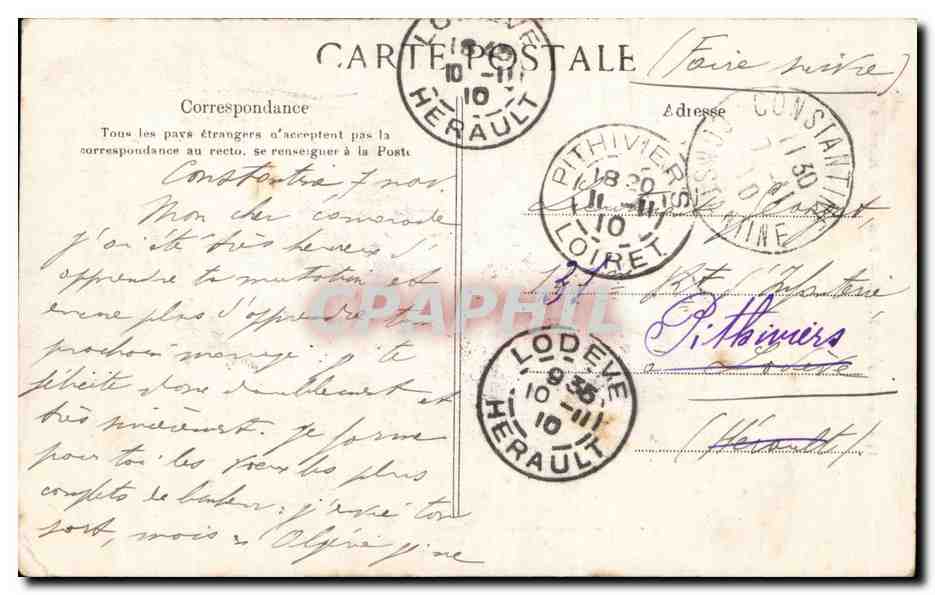 CARTE POSTALE
(Faire suivre)
Correspondance
Tous les pays étrangers n'acceptent pas la
correspondance au recto, se renseigner à la Poste
Constantine 7 nov.
Mon cher camarade
j'ai été très heureux d'
apprendre ta mutation et
encore plus d'apprendre ton
prochain mariage; je te
félicite donc doublement et
très sincèrement. Je forme
pour toi les voeux les plus
complets de bonheur; j'envie ton
sort, mais en Algérie je ne
Adresse
Rt d'Infanterie
Pithiviers
à Lodève
(Hérault)
LODEVE
18 45
10 -11
10
HERAULT
PITHIVIERS
18 20
11 -11
10
LOIRET
CONSTANTINE
11 30
7 -11
10
CONSTANTINE
LODEVE
9 35
10 -11
10
HERAULT
CPAPHIL